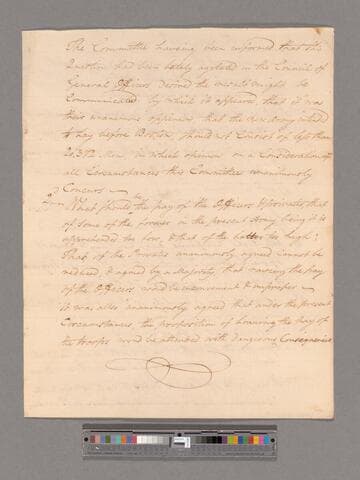 The Committee having been informed that this
Question had been lately agitated in the Council of
General Officers desired the result might be
Communicated by which it appeared, that it was
their unanimous opinion that the new Army intended
to lay before Boston should Consist of not less than
20,372 Men in which opinion on a Consideration of
all Circumstances this Committee unanimously
Concurs
2d
What should the pay of the Officers & Privates, that
of some of the former in the present Army being it is
apprehended too low, & that of the latter too high;
That of the Privates unanimously agreed cannot be
reduced, & agreed by a Majority, that raising the pay
of the Officers would be inconvenient & improper
it was also unanimously agreed that under the present
Circumstances, the proposition of lowering the pay of
the troops would be attended with dangerous Consequences